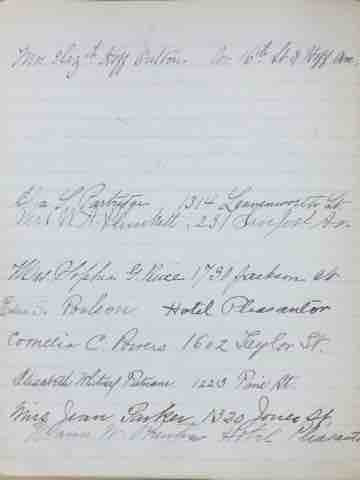 Mrs. Elizth Hoff Patton. Cor 16th St & Hoff Ave.
Partridge 1314 Leavenworth St
Mrs. A. Plunkett, 231 Av.
Mrs Sophia G. 1731 Jackson St
Poulson Hotel Pleasanton
Cornelia C. Powers 1602 Taylor St.
Elizabeth Whitney Putnam 1223 Pine St.
Mrs Jean Parker 1320 Jones St
W. Hotel Pleasanton